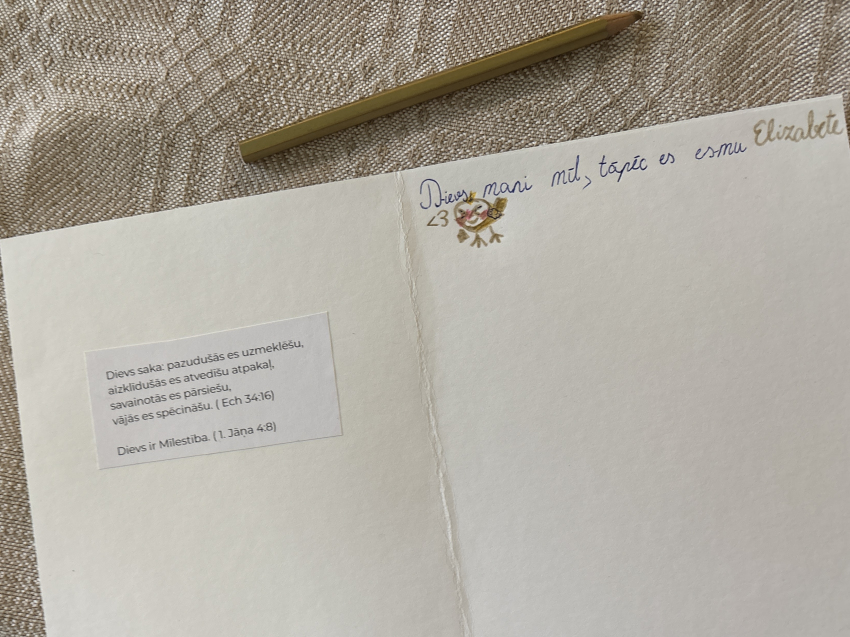 Dievs mani mīl, tāpēc es esmu Elizabete
<3
Dievs saka: pazudušās es uzmeklēšu,
aizklīdušās es atvedīšu atpakaļ,
savainotās es pārsiešu,
vājās es spēcināšu. ( Ech 34:16)
Dievs ir Mīlestība. ( 1. Jāņa 4:8)